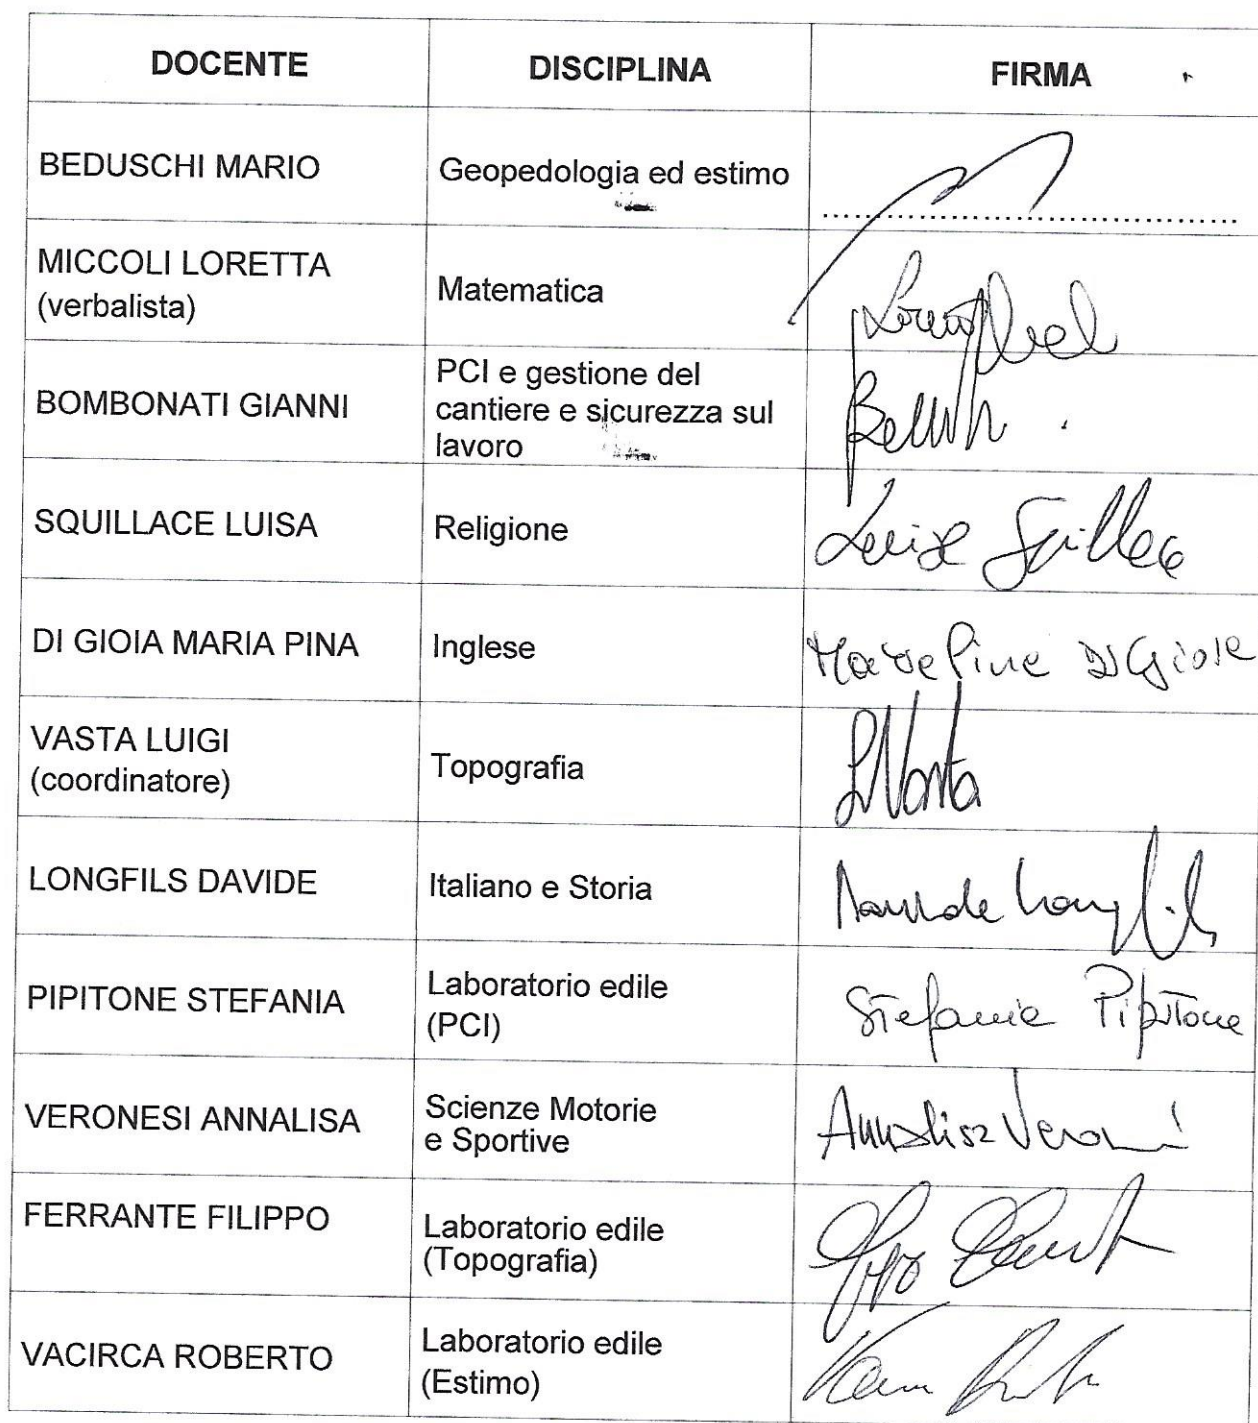 DOCENTE DISCIPLINA FIRMA
BEDUSCHI MARIO Geopedologia ed estimo
MICCOLI LORETTA
(verbalista)
Matematica
BOMBONATI GIANNI
PCI e gestione del
cantiere e sicurezza sul
lavoro
SQUILLACE LUISA Religione Luisa Squillace
DI GIOIA MARIA PINA Inglese Maria Pina Di Gioia
VASTA LUIGI
(coordinatore)
Topografia
L Vasta
LONGFILS DAVIDE Italiano e Storia Davide Longfils
PIPITONE STEFANIA
Laboratorio edile
(PCI)
Stefania Pipitone
VERONESI ANNALISA
Scienze Motorie
e Sportive
Annalisa Veronesi
FERRANTE FILIPPO
Laboratorio edile
(Topografia)
VACIRCA ROBERTO
Laboratorio edile
(Estimo)